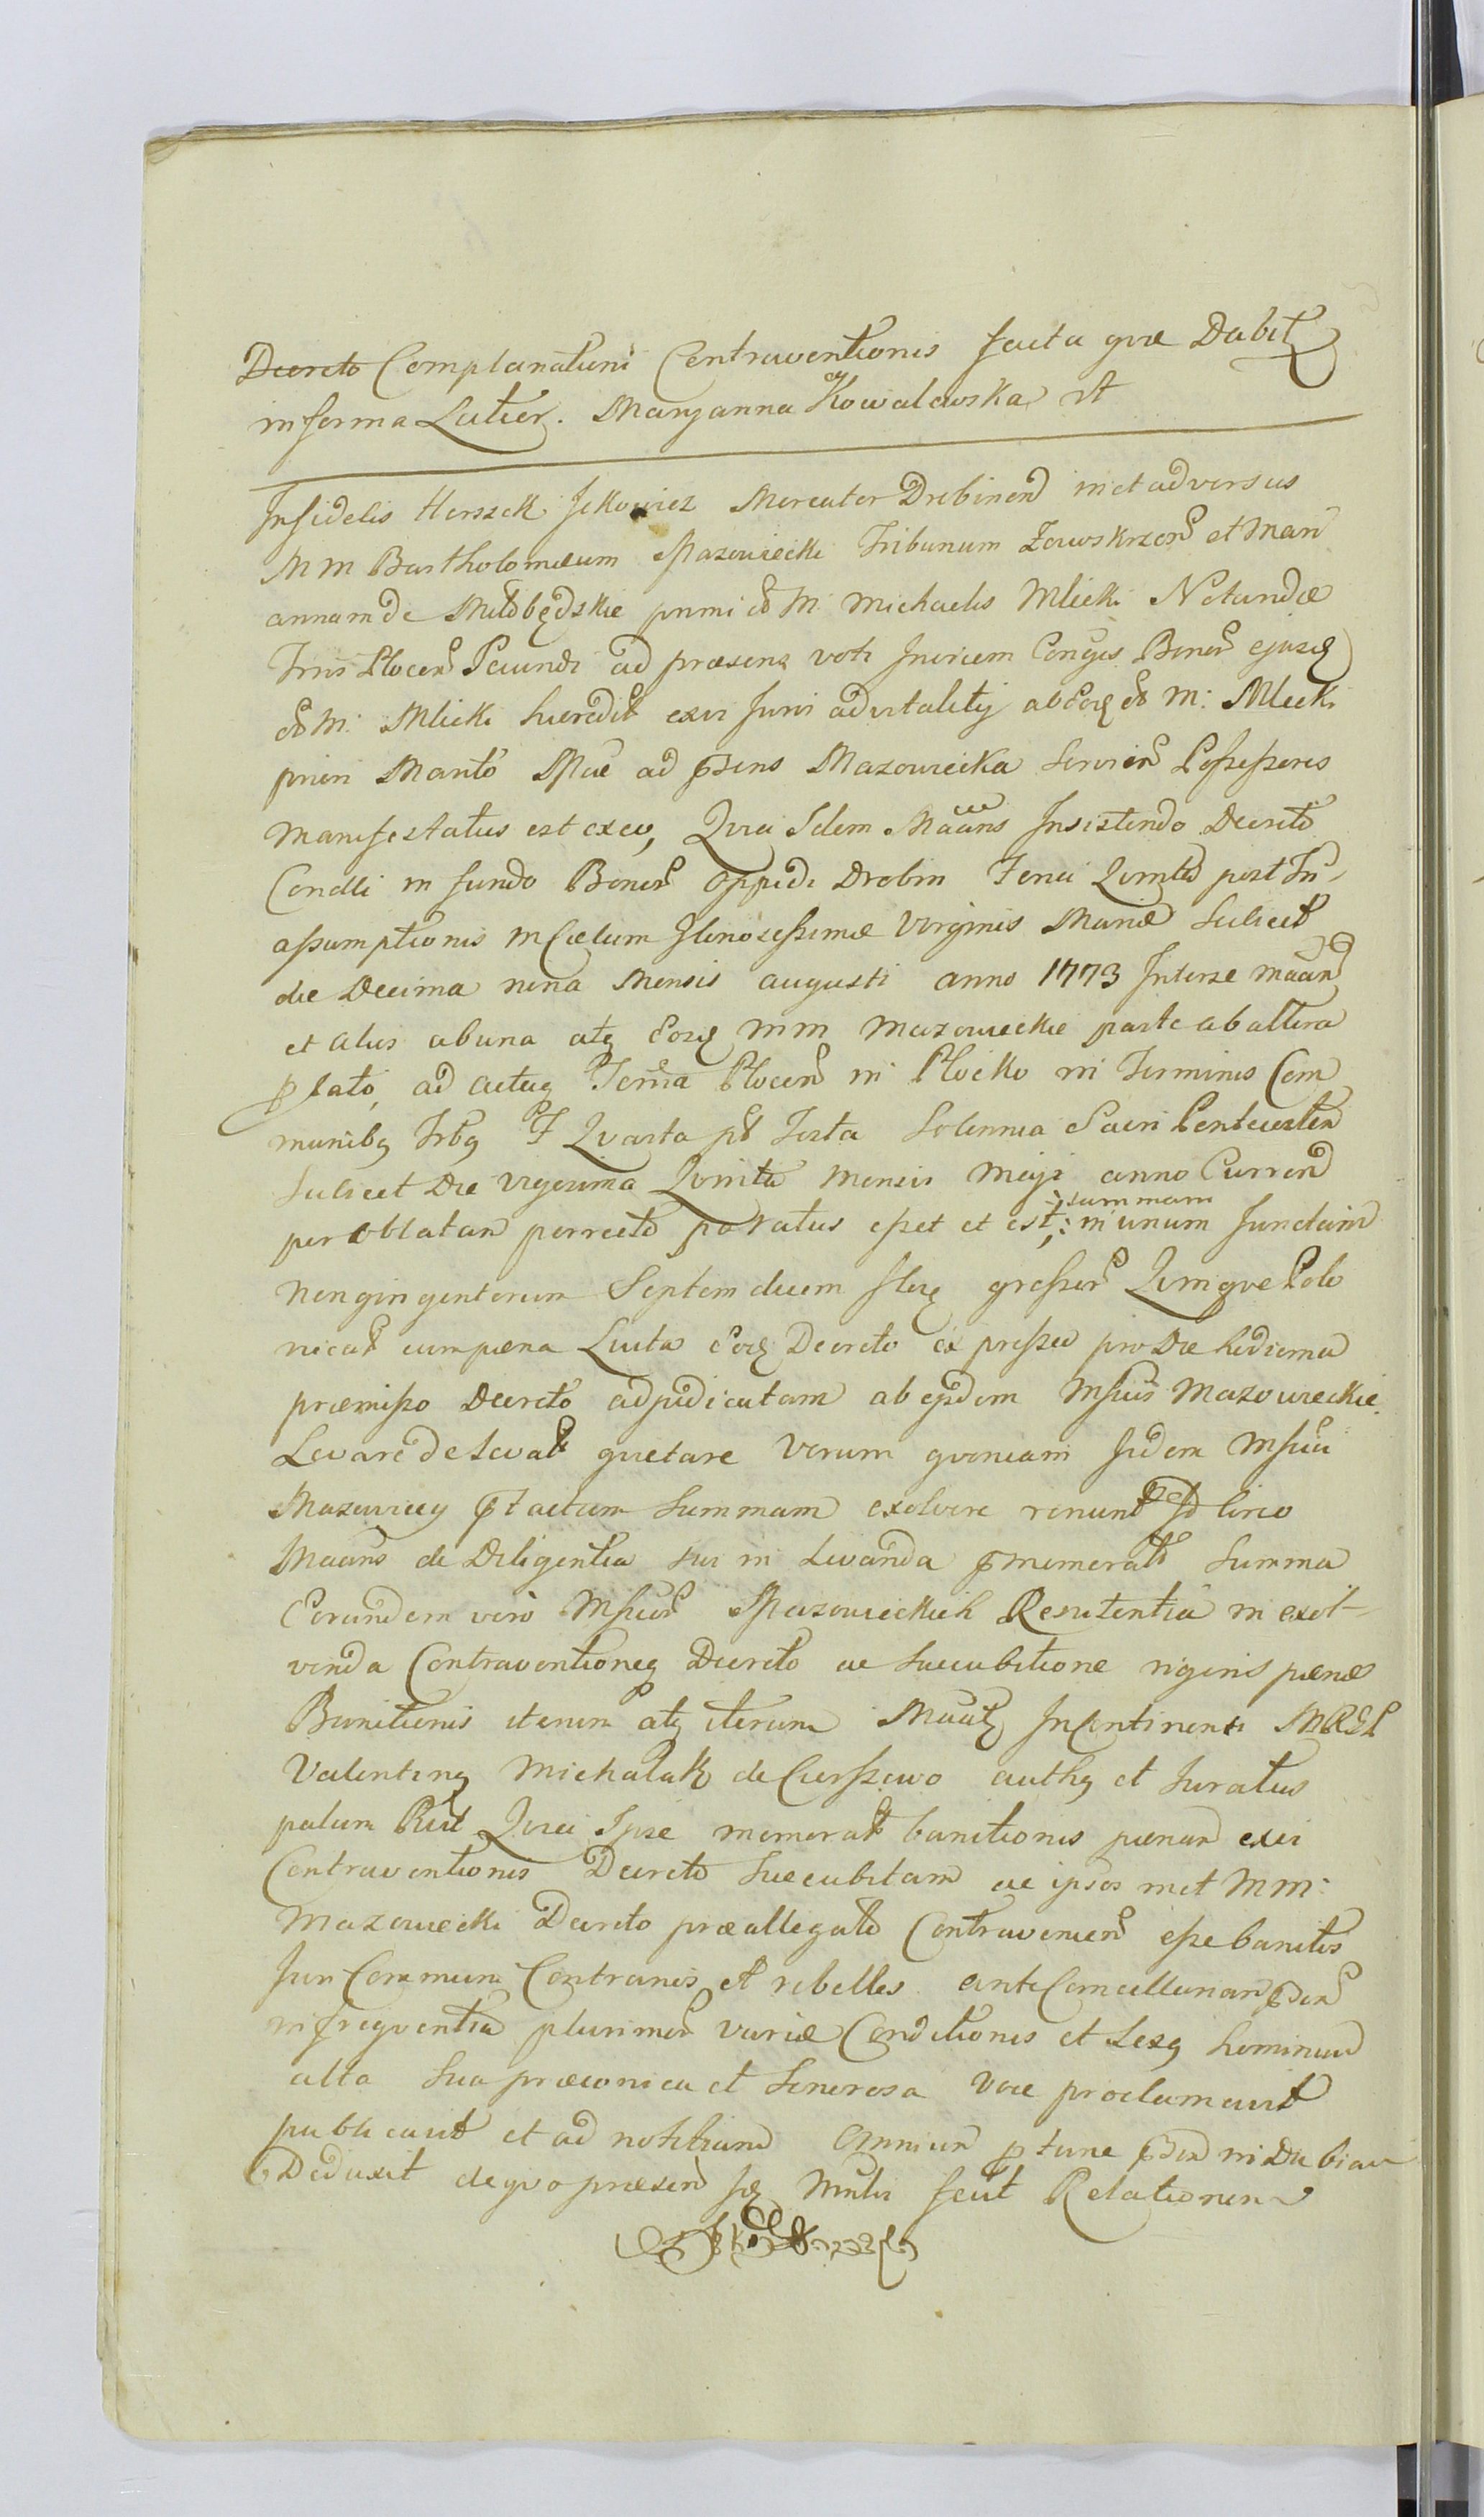 Decreto Complanationi Contraventionis facta quæ Dabit
in forma Latior. Maryanna Kowalewska rt
Infidelis Herszek Jckowicz Mercator Drobinen in et adversus
MM Bartholomæum Mazowiecki Tribunum Zawskrzen et Mari
annam de Miłobędzkie primi M Michaelis Mlicki Notandæ
Trris Plocen Secundi ad præsens voti Invicem Conjges Bonor ejusq
M: Mlicki hæredit ex vi Juris advitalitij ab M: Mlicki
priori Marito Suæ ad psens Mazowiecka Possessores
Manifestatus est ex eo, Quia Idem Maans Insistendo Decreto
Condli in fundo Bonor Oppidi Drobin Feria Quinta post In
assumptionis in Cælum Glorosissimæ Virginis Mariæ Scilicet
die Decima nona Mensis Augusti anno 1773 Interse Maan
et alus ab una atq MM Mazowieckie parte ab altera
plato, ad actuq Terria Plocen in Płocko in Terminis Com
munibq Trbq F Quarta pt Festa Solennia Sacri Pentecosten
Scilicet Die vigesima Quinta Mensis Maji anno Curren
per oblatan porrecto paratus esset et est,: in unum summam junctam
Nongingentorum Septemdecem florq grossor Quinque Polo
nical cum pæna Luita Decreto expressa pro Die hodierna
præmisso Decreto adjudicatam ab ejsdem Mficis Mazowieckie.
Levare de levat quietare Verum quoniam Iidem Mfici
Mazowiecy ptactam Summam exolvere renunt Id circo
Maans de Diligentia sui in Levanda pmemorata Summa
Eorundem vero Mficor Mazowieckich Renitentia in exol-
venda Contraventioneq Decreto ac Succubitione rigoris pænæ
Banitionis iterum atq iterum Maatq Incontinenti MREL
Valentinq Michalak de Cieszewo authq et Juratus
palam Quia Ipse memorat banitionis pænam ex vi
Contraventionis Decreto Succubitam ac ipsos met MM:
Mazowiecki Decreto præallegato Contravenien esse banitos
Juri Communi Contrarios et rebelles ante Cancellariam psen
in frequentia plurimor variæ Conditionis et Sexq hominum
alta sua præconica et Sonorosa Voce proclamavit
publicavit et ad notitiam Omnium p tunc psen in Dubiam
Deduxit de quo præsen sq Mnli fecit Relationem